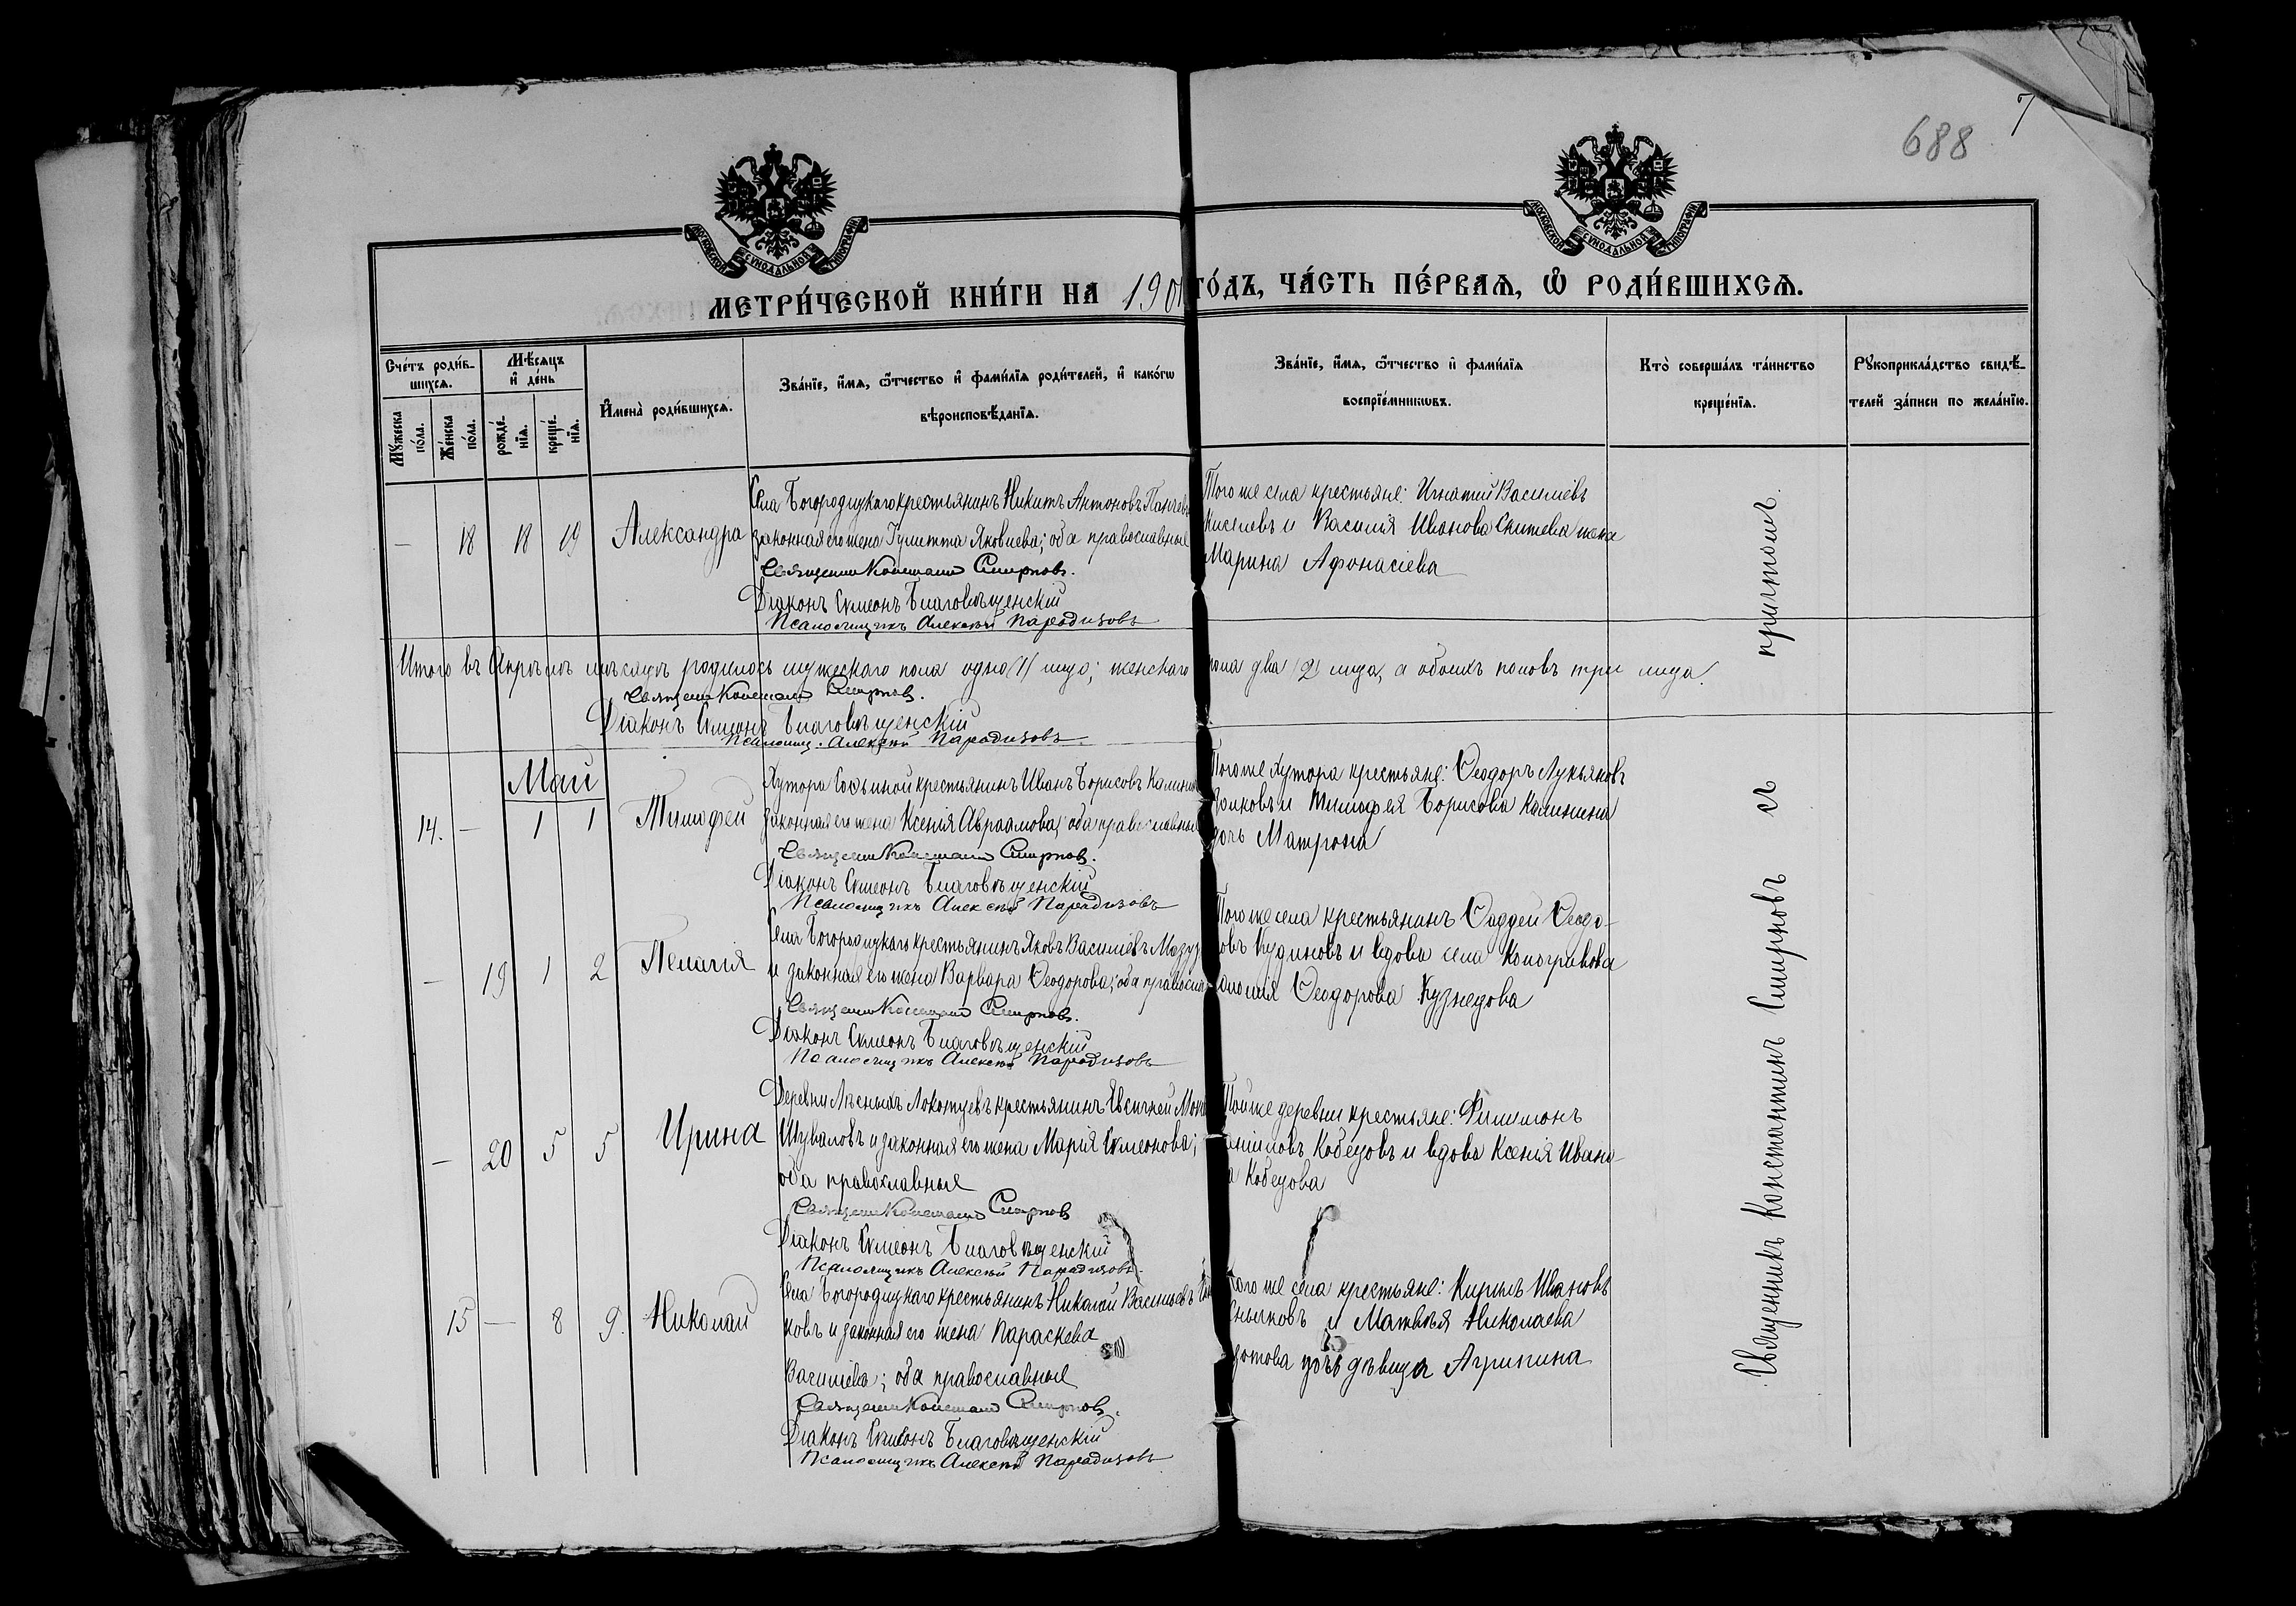 688
7
МОСКОВСКОЙ СѴНОДАЛЬНОЙ ТИПОГРАФІИ
МОСКОВСКОЙ СѴНОДАЛЬНОЙ ТИПОГРАФІИ
МЕТРИ́ЧЕСКОЙ КНИ́ГИ НА 190 ГО́ДЪ, ЧА́СТЬ ПЕ́РВАѦ, Ѡ҆ РОДИ́ВШИХСѦ.
Сче́тъ роди́в-
шихсѧ.
Мꙋ́жеска по́ла.
Же́нска по́ла.
Мѣ́сѧцъ
и҆ де́нь
рожде́-
нїѧ.
креще́-
нїѧ.
И҆мена̀ роди́вшихсѧ.
Зва́нїе, и҆́мѧ, ѻ҆́тчество и҆ фами́лїѧ роди́телей, и҆ како́гѡ
вѣроисповѣ́данїѧ.
Зва́нїе, и҆́мѧ, ѻ҆́тчество и҆ фами́лїѧ
воспрїе́мникѡвъ.
Кто̀ соверша́лъ та́инство
креще́нїѧ.
Рꙋкоприкла́дство свидѣ́-
телей за́писи по жела́нїю.
— 18 18 19 Александра
Села Богородицкаго крестьянинъ Никита Антоновъ
законная его жена Іулитта Яковлева; оба православные
Священ Констант Смирновъ.
Діаконъ Сѵмеонъ Благовѣщенскій
Псаломщикъ Алексѣй Парадизовъ
Того же села крестьяне: Игнатій Василіевъ
Киселевъ и Василія Иванова жена
Марина Афонасіева
Итого въ Апрѣлѣ мѣсяцѣ родилось мужескаго пола одно (1) лицо; женскаго пола два (2) лица, а обоихъ половъ три лица.
Священ Констант Смирновъ.
Діаконъ Сѵмеонъ Благовѣщенскій
Псаломщ. Алексѣй Парадизовъ
Май
14. — 1 1 Тимофей
Хутора крестьянинъ Иванъ Борисовъ
законная его жена Ксенія Авраамова; оба православные
Священ Констант Смирновъ.
Діаконъ Сѵмеонъ Благовѣщенскій
Псаломщикъ Алексѣй Парадизовъ
Того же хутора крестьяне: Ѳеодоръ Лукьяновъ
и Тимофея Борисова Калинина
дочь Матрона
— 19 1 2 Пелагія
Села Богородицкаго крестьянинъ Яковъ Василіевъ
и законная его жена Варвара Ѳеодорова; оба
Священ Констант Смирновъ.
Діаконъ Сѵмеонъ Благовѣщенскій
Псаломщикъ Алексѣй Парадизовъ
Того же села крестьянинъ Ѳаддей Ѳеодо-
ровъ Кудиновъ и вдова села
Ѳеодорова Кузнецова
— 20 5 5 Ирина
Деревни Лѣсныхъ Локотцевъ крестьянинъ Евсигней
Шуваловъ и законная его жена Марія Сѵмеонова;
оба православные
Священ Констант Смирновъ
Діаконъ Сѵмеонъ Благовѣщенскій
Псаломщикъ Алексѣй Парадизовъ
Той же деревни крестьяне: Филимонъ
Кобецовъ и вдова Ксенія Ивано-
ва Кобецова
15 — 8 9. Николай
Села Богородицкаго крестьянинъ Николай Васильевъ
и законная его жена Параскева
Василіева; оба православные
Священ Констант Смирновъ.
Діаконъ Сѵмеонъ Благовѣщенскій
Псаломщикъ Алексѣй Парадизовъ
Того же села крестьяне: Кирилъ Ивановъ
и Матвѣя Николаева
дочь дѣвица Агрипина
Священникъ Константинъ Смирновъ съ причтомъ.